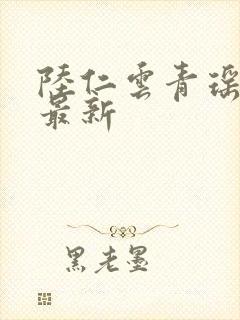 陸仁雲青瑶
最新
黑老墨